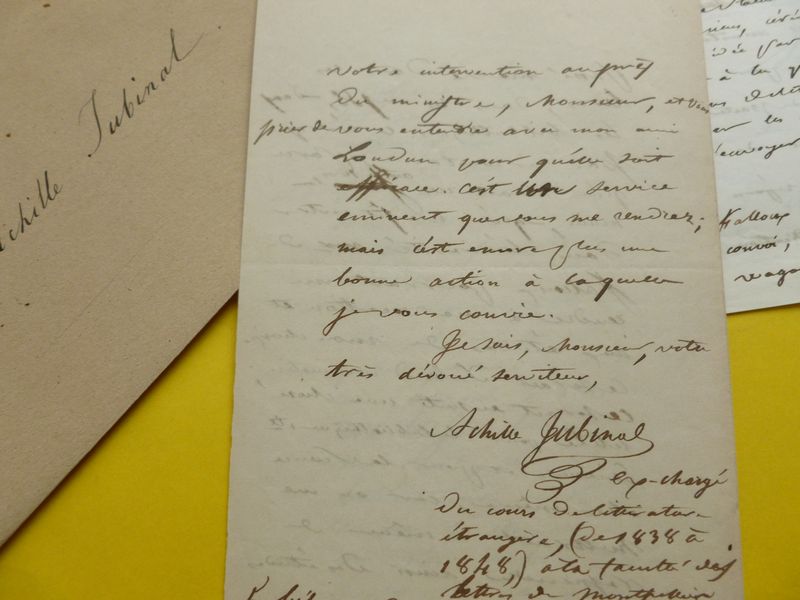 Achille Jubinal
votre intervention auprès
du ministre, Monsieur, et vous
prier de vous entendre avec mon ami
Loudun pour qu'elle soit
efficace. C'est un service
eminent que vous me rendrez;
mais c'est encore plus une
bonne action à laquelle
je vous convie.
Je suis, Monsieur, votre
très dévoué serviteur,
Achille Jubinal
ex-chargé
du cours de littérature
étrangère, (de 1838 à
1848,) à la faculté des
lettres de Montpellier
à la
les
Falloux
convoi,